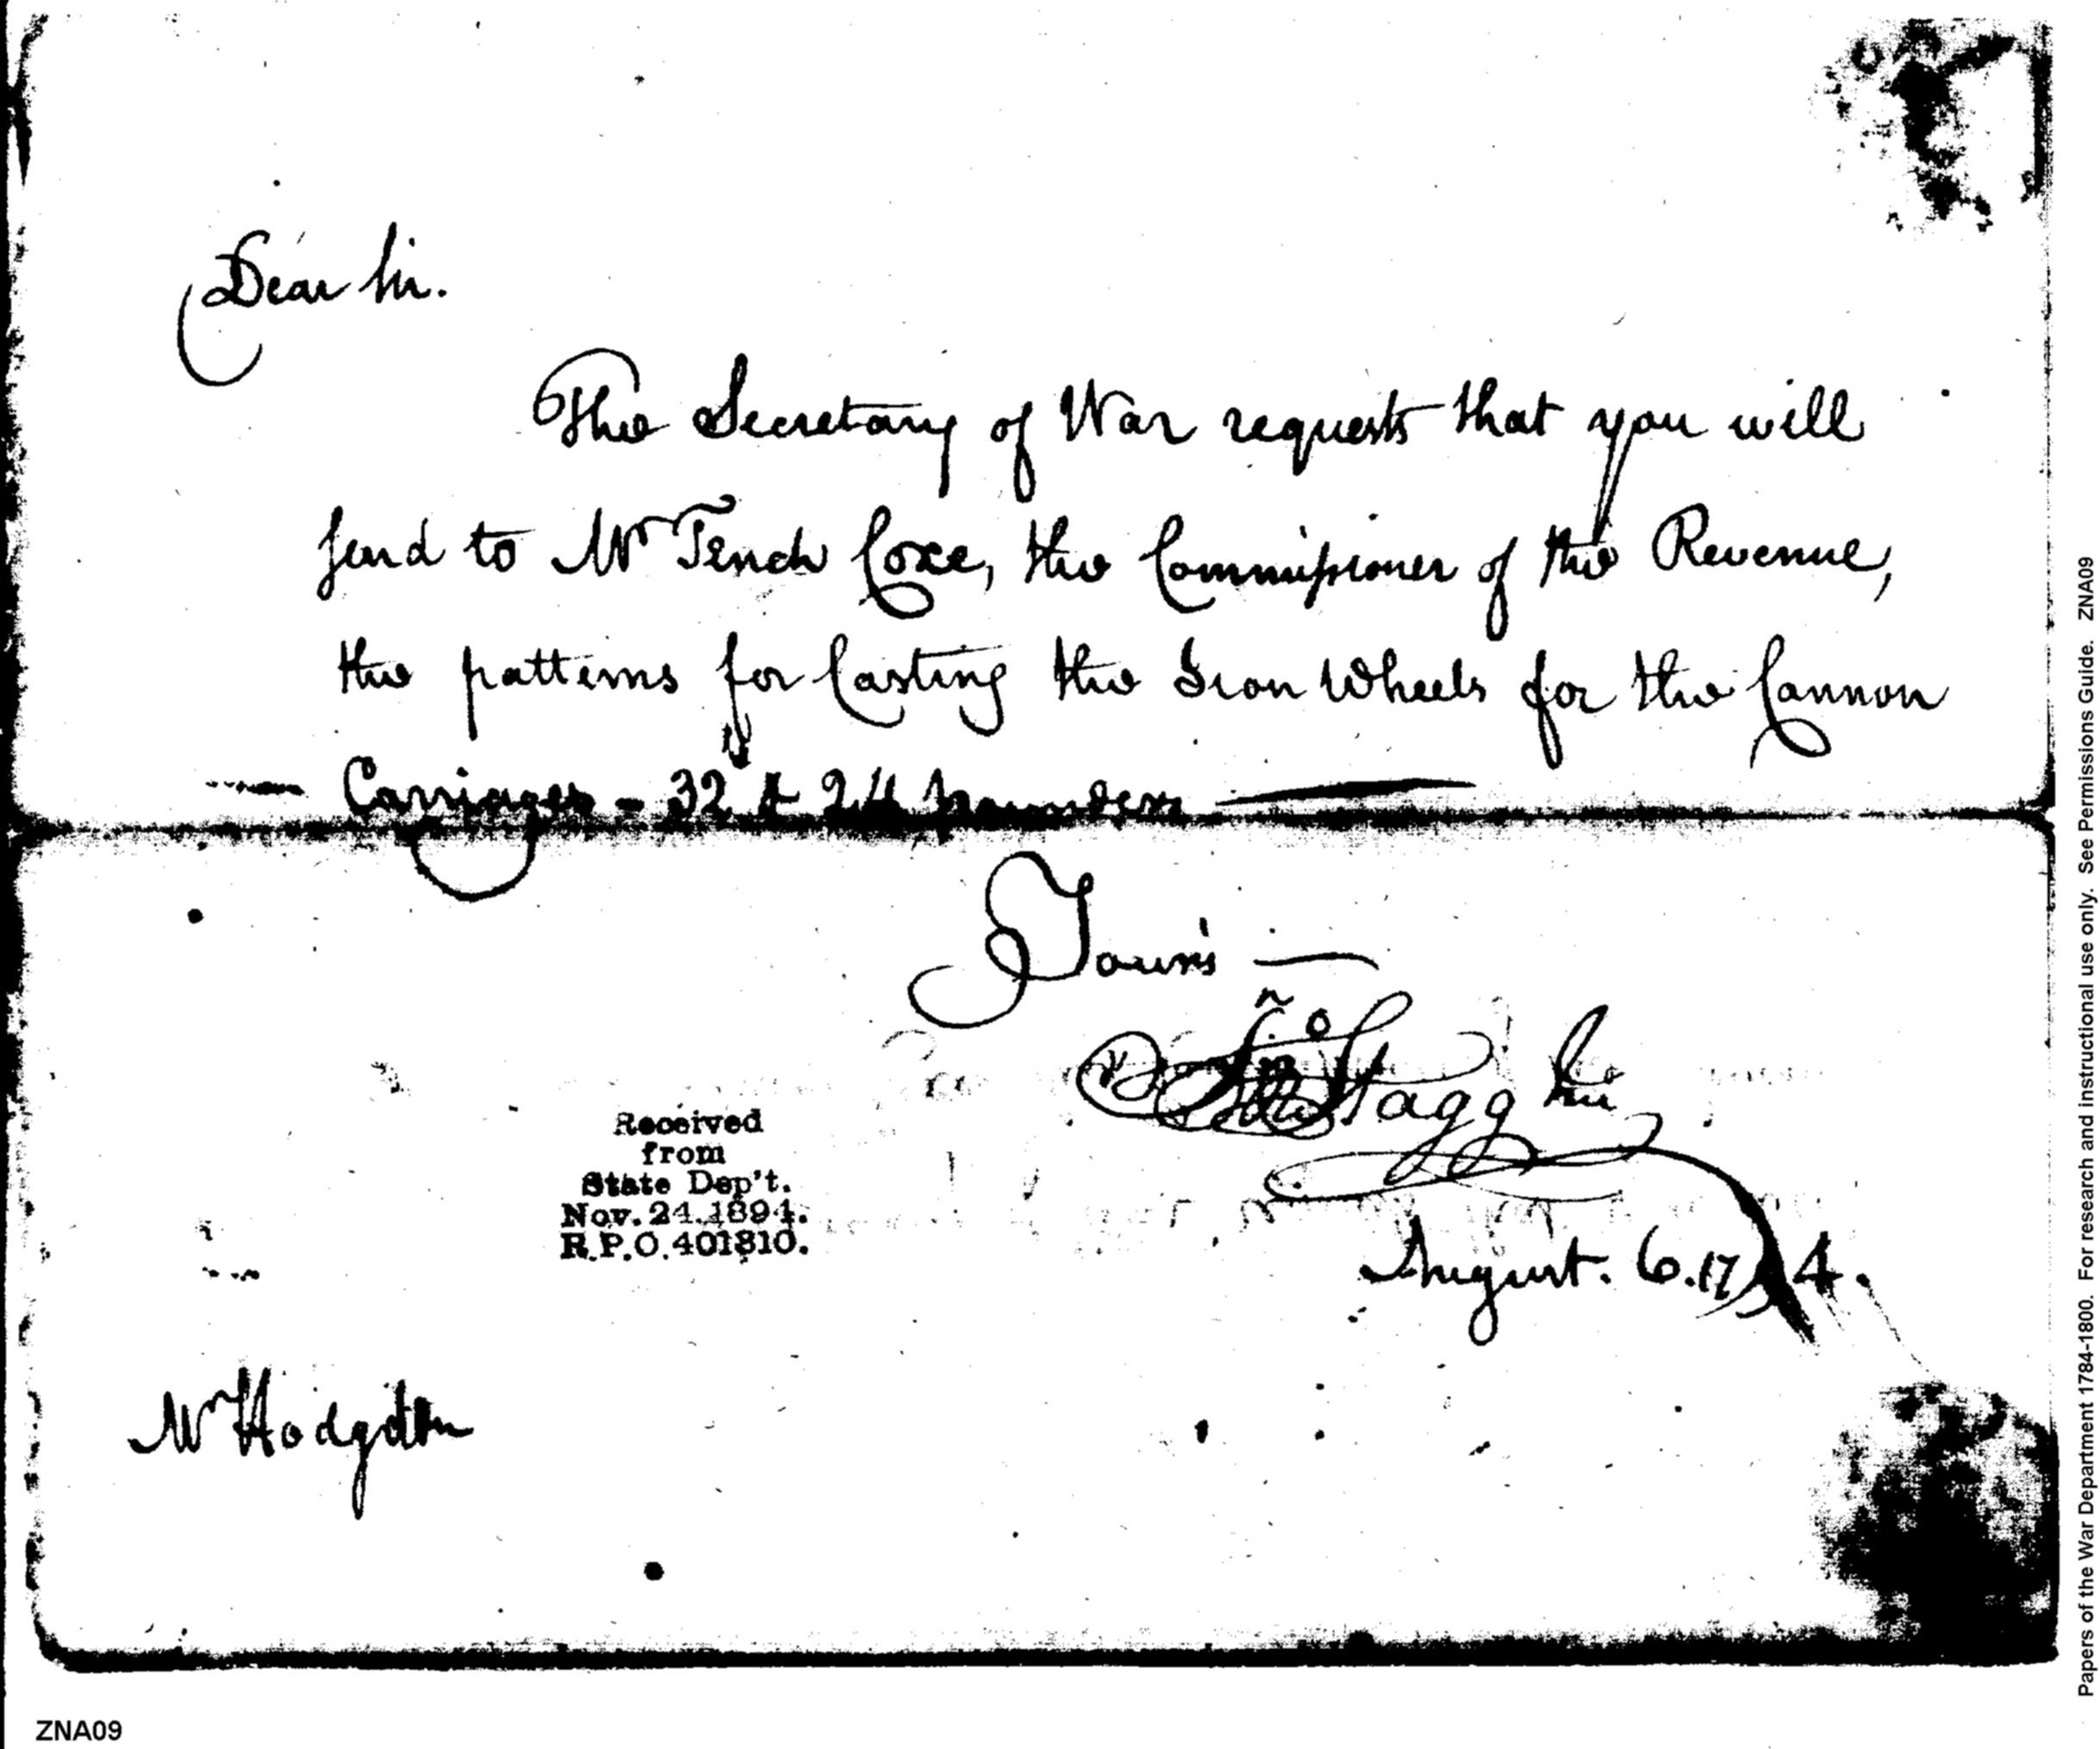 Dear Sir.
The Secretary of War requests that you will
send to Mr Tench Coxe, the Commissioner of the Revenue,
the patterns for Casting the Iron Wheels for the Cannon
Carriages - 32 & 24 pounders
Your's
Jno Stagg Jur
Received
from
State Dep't.
Nov. 24. 1894.
R.P.O. 401810.
August. 6. 1794.
Mr Hodgdon
ZNA09
Papers of the War Department 1784-1800. For research and instructional use only. See Permissions Guide. ZNA09